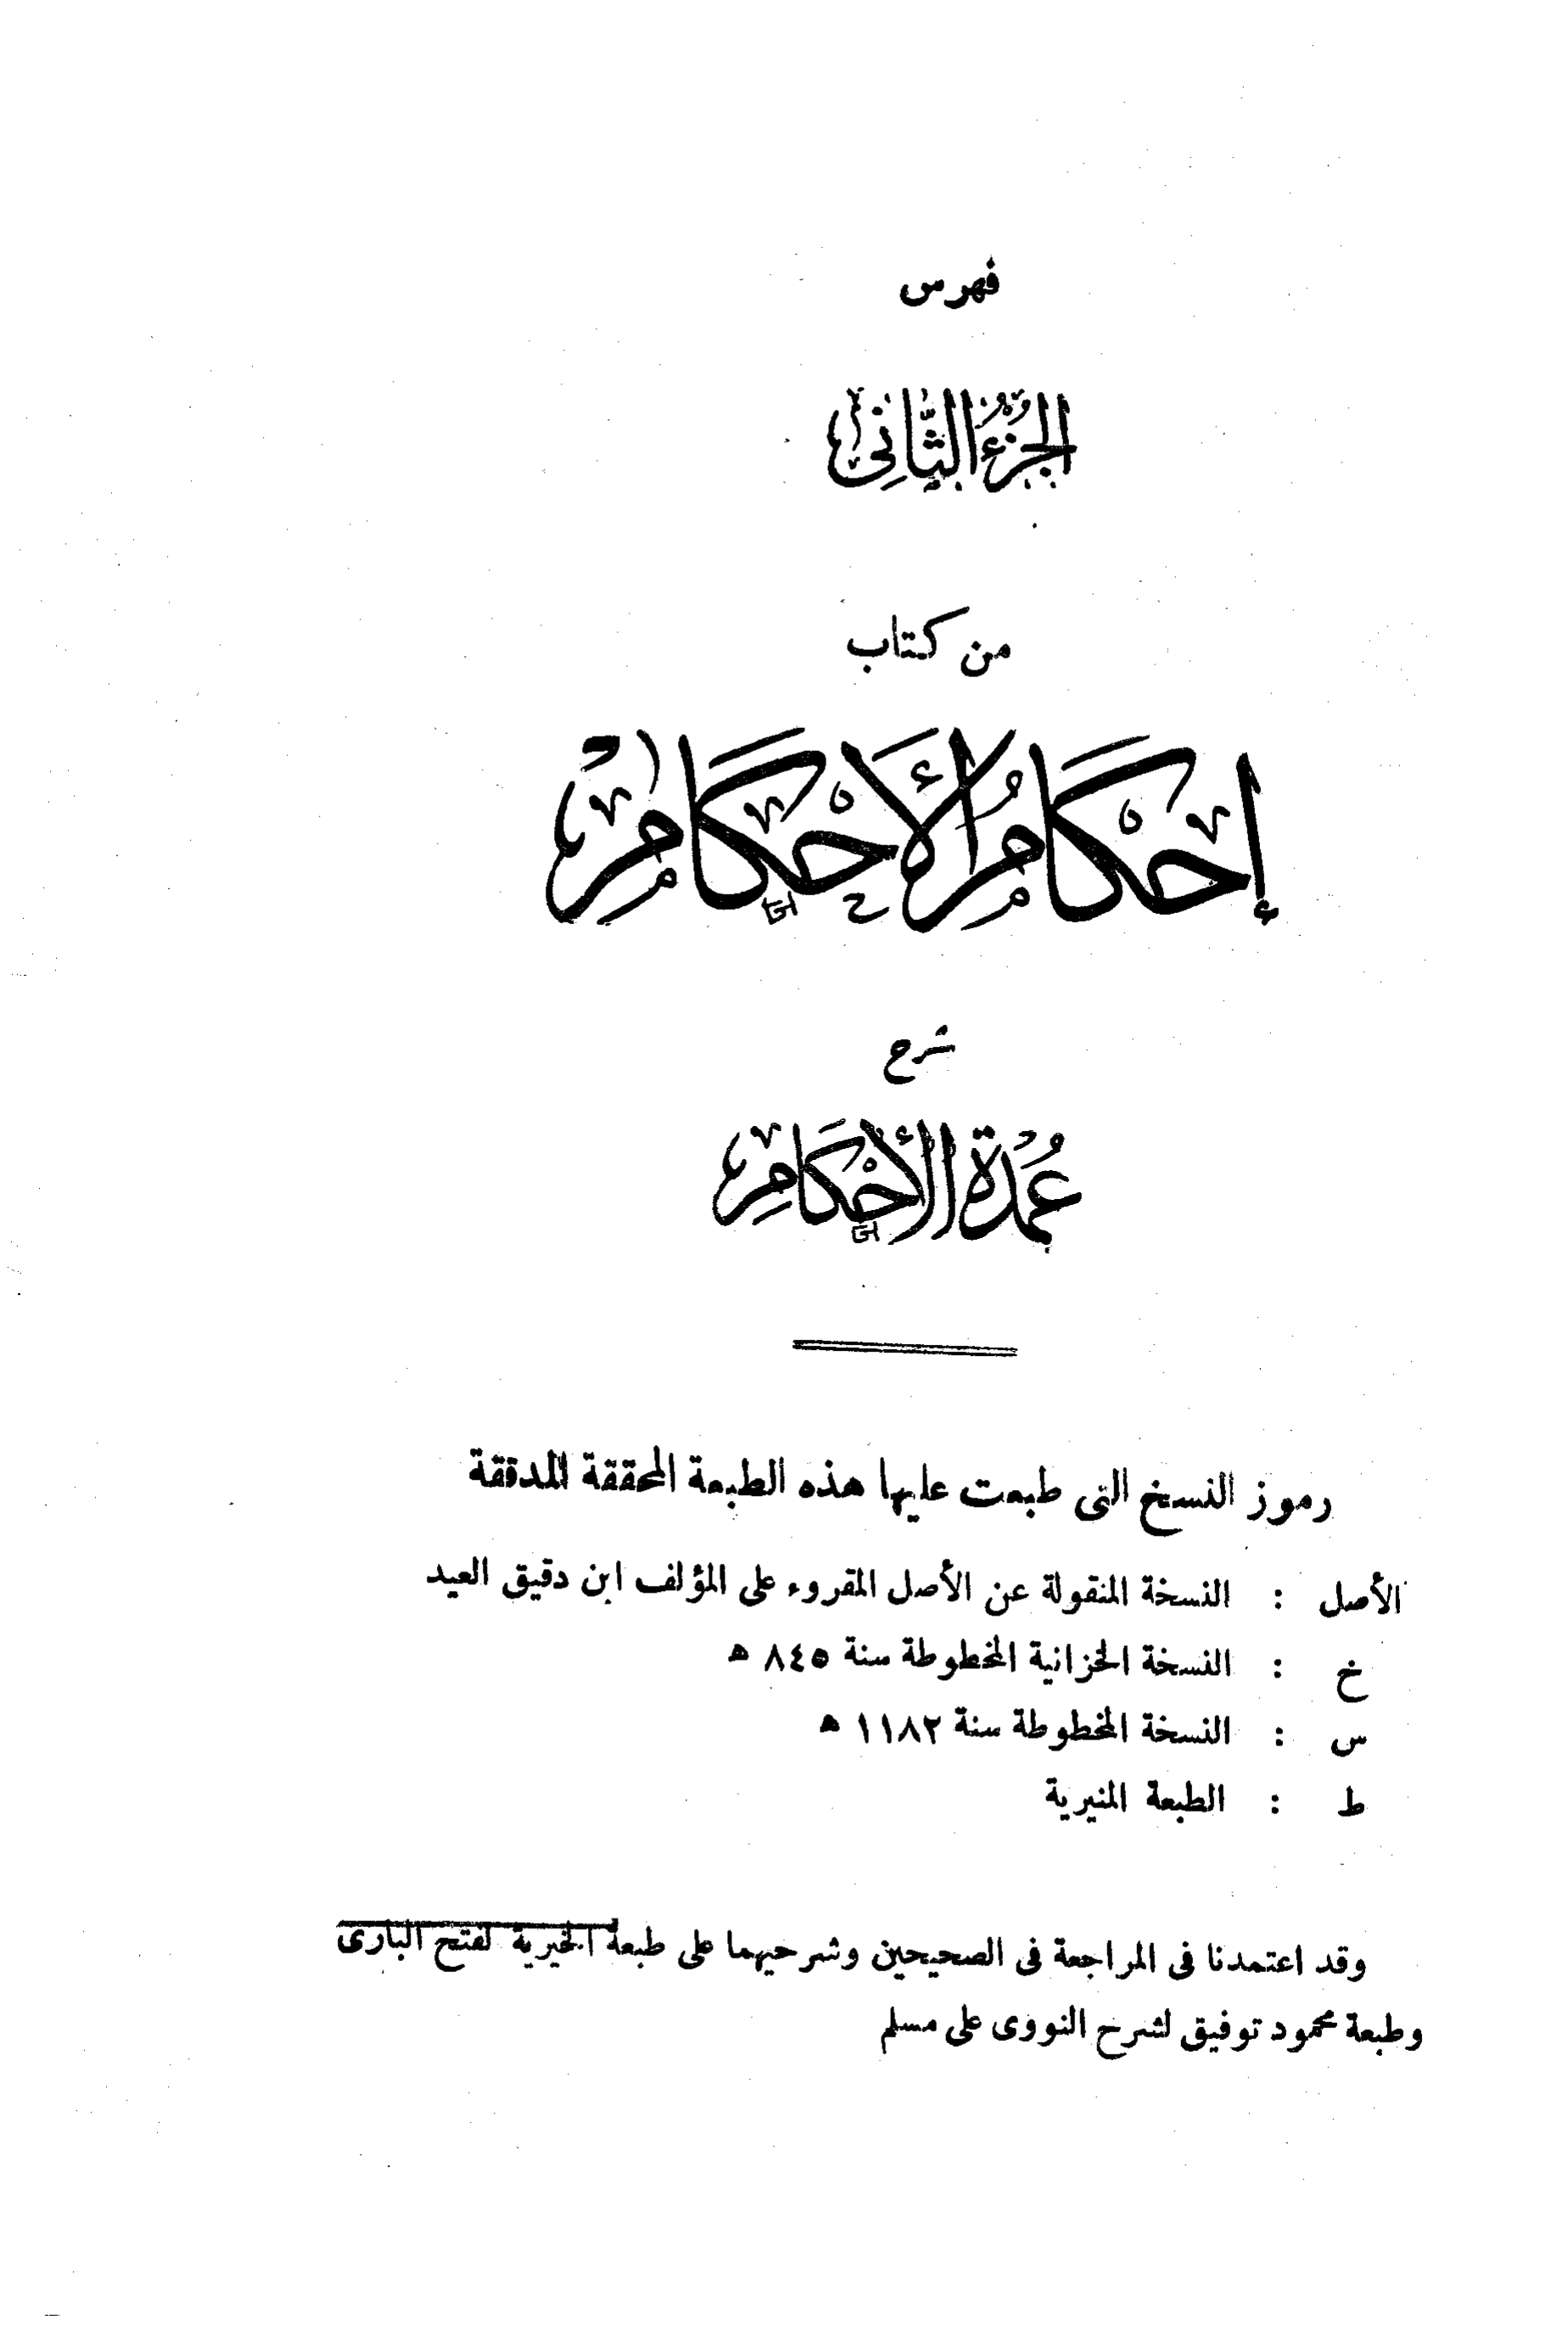 فهرس
الجُزْءُ الثَّانِي
من كتاب
إِحْكَامُ الأَحْكَامِ
شرح
عُمْدَة الأَحْكَامِ
رموز النسخ التى طبعت عليها هذه الطبعة المحققة المدققة
الأصل : النسخة المنقولة عن الأصل المقروء على المؤلف ابن دقيق العيد
خ : النسخة الخزانية المخطوطة سنة ٨٤٥ ه
س : النسخة المخطوطة سنة ١١٨٢ ه
ط : الطبعة المنيرية
وقد اعتمدنا فى المراجعة فى الصحيحين وشرحيهما على طبعة الخيرية لفتح البارى
وطبعة محمود توفيق لشرح النووى على مسلم